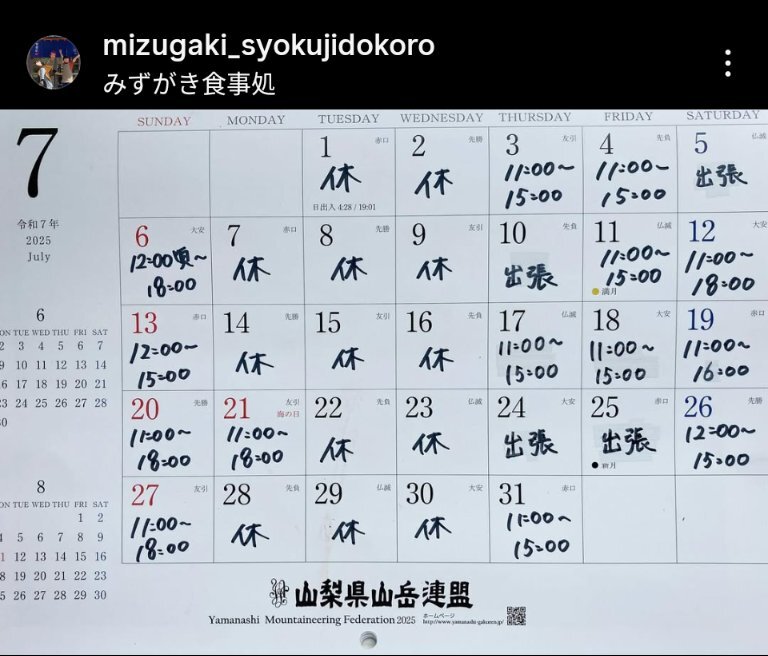 mizugaki_syokujidokoro
みずがき食事処
7
令和7年
2025
July
SUNDAY MONDAY TUESDAY WEDNESDAY THURSDAY FRIDAY SATURDAY
1 赤口
休
日出入 4:28 / 19:01
2 先勝
休
3 友引
11:00~
15:00
4 先負
11:00~
15:00
5 仏滅
出張
6 大安
12:00頃~
18:00
7 赤口
休
8 先勝
休
9 友引
休
10 先負
出張
11 仏滅
11:00~
15:00
満月
12 大安
11:00~
18:00
13 赤口
12:00~
15:00
14 先勝
休
15 友引
休
16 先負
休
17 仏滅
11:00~
15:00
18 大安
11:00~
15:00
19 赤口
11:00~
16:00
20 先勝
11:00~
18:00
21 友引
海の日
11:00~
18:00
22 先負
休
23 仏滅
休
24 大安
出張
25 赤口
出張
新月
26 先勝
12:00~
15:00
27 友引
11:00~
18:00
28 先負
休
29 仏滅
休
30 大安
休
31 赤口
11:00~
15:00
6
ON TUE WED THU FRI SAT
2 3 4 5 6 7
9 10 11 12 13 14
16 17 18 19 20 21
23 24 25 26 27 28
30
8
ON TUE WED THU FRI SAT
1 2
4 5 6 7 8 9
11 12 13 14 15 16
18 19 20 21 22 23
25 26 27 28 29 30
山梨県山岳連盟
Yamanashi Mountaineering Federation 2025
ホームページ
http://www.yamanashi-gakuren.jp/